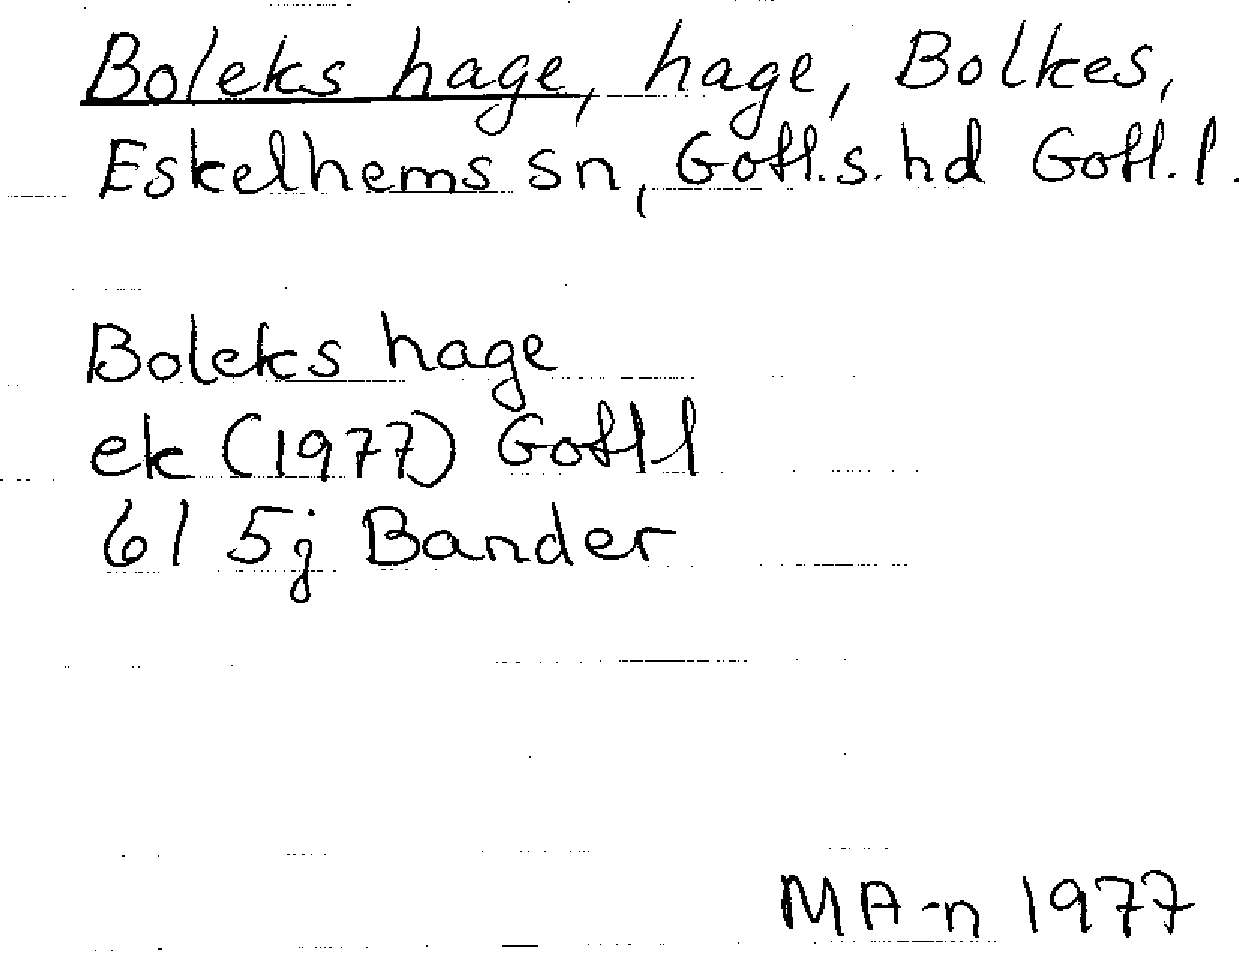 Boleks hage, hage, Bolkes,
Eskelhems sn, Gotl.s. hd Gotl. l.
Boleks hage
ek (1977) Gotl l
6I 5j Bander
MA-n 1977